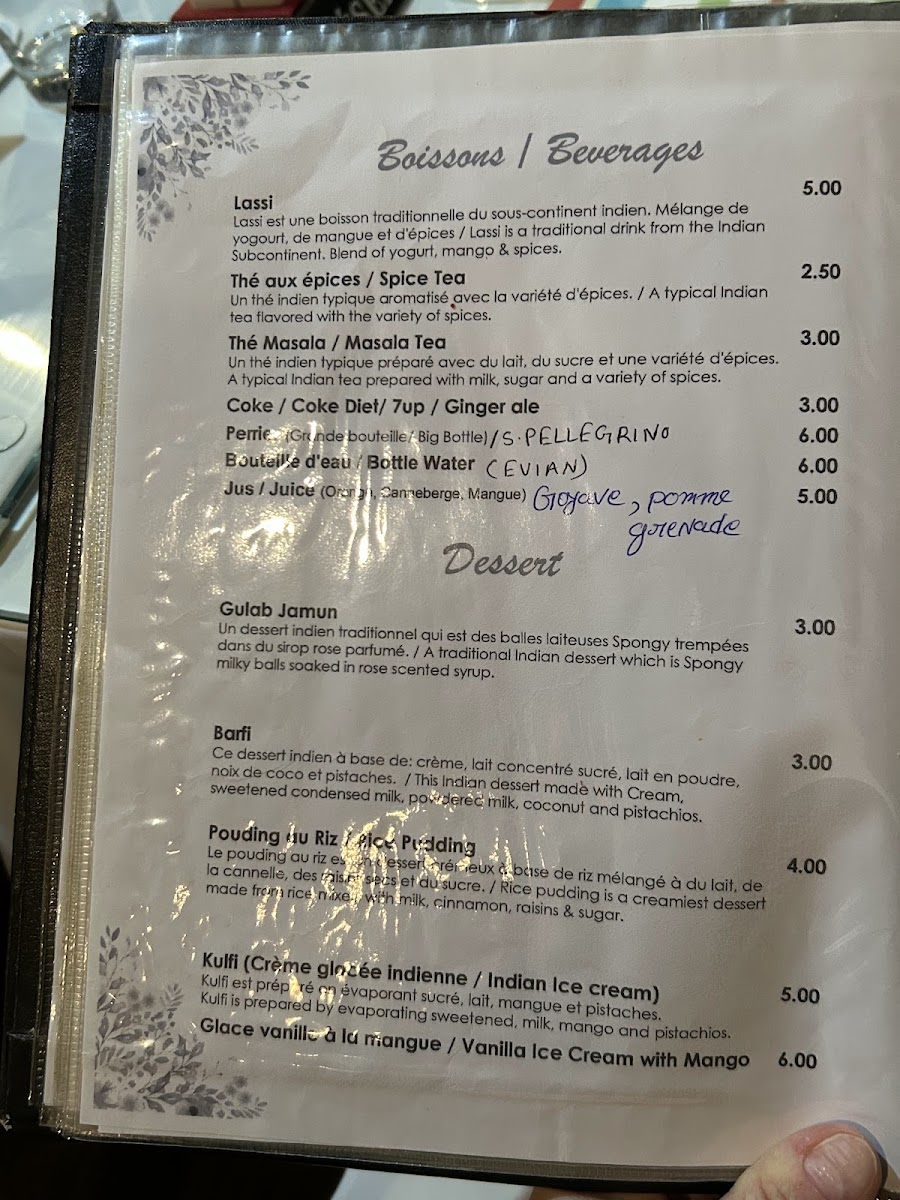 Boissons / Beverages
Lassi 5.00
Lassi est une boisson traditionnelle du sous-continent indien. Mélange de
yogourt, de mangue et d'épices / Lassi is a traditional drink from the Indian
Subcontinent. Blend of yogurt, mango & spices.
Thé aux épices / Spice Tea 2.50
Un thé indien typique aromatisé avec la variété d'épices. / A typical Indian
tea flavored with the variety of spices.
Thé Masala / Masala Tea 3.00
Un thé indien typique préparé avec du lait, du sucre et une variété d'épices.
A typical Indian tea prepared with milk, sugar and a variety of spices.
Coke / Coke Diet/ 7up / Ginger ale 3.00
Perrie (Grande bouteille/ Big Bottle)/S.PELLEGRINO 6.00
Bouteille d'eau / Bottle Water (EVIAN) 6.00
Jus / Juice (Orange, Canneberge, Mangue) Goyave, pomme 5.00
grenade
Dessert
Gulab Jamun 3.00
Un dessert indien traditionnel qui est des balles laiteuses Spongy trempées
dans du sirop rose parfumé. / A traditional Indian dessert which is Spongy
milky balls soaked in rose scented syrup.
Barfi 3.00
Ce dessert indien à base de: crème, lait concentré sucré, lait en poudre,
noix de coco et pistaches. / This Indian dessert made with Cream,
sweetened condensed milk, powdered milk, coconut and pistachios.
Pouding au Riz / Rice Pudding 4.00
Le pouding au riz est un dessert crémeux à base de riz mélangé à du lait, de
la cannelle, des raisins secs et du sucre. / Rice pudding is a creamiest dessert
made from rice mixed with milk, cinnamon, raisins & sugar.
Kulfi (Crème glacée indienne / Indian Ice cream) 5.00
Kulfi est préparé en évaporant sucré, lait, mangue et pistaches.
Kulfi is prepared by evaporating sweetened, milk, mango and pistachios.
Glace vanille à la mangue / Vanilla Ice Cream with Mango 6.00